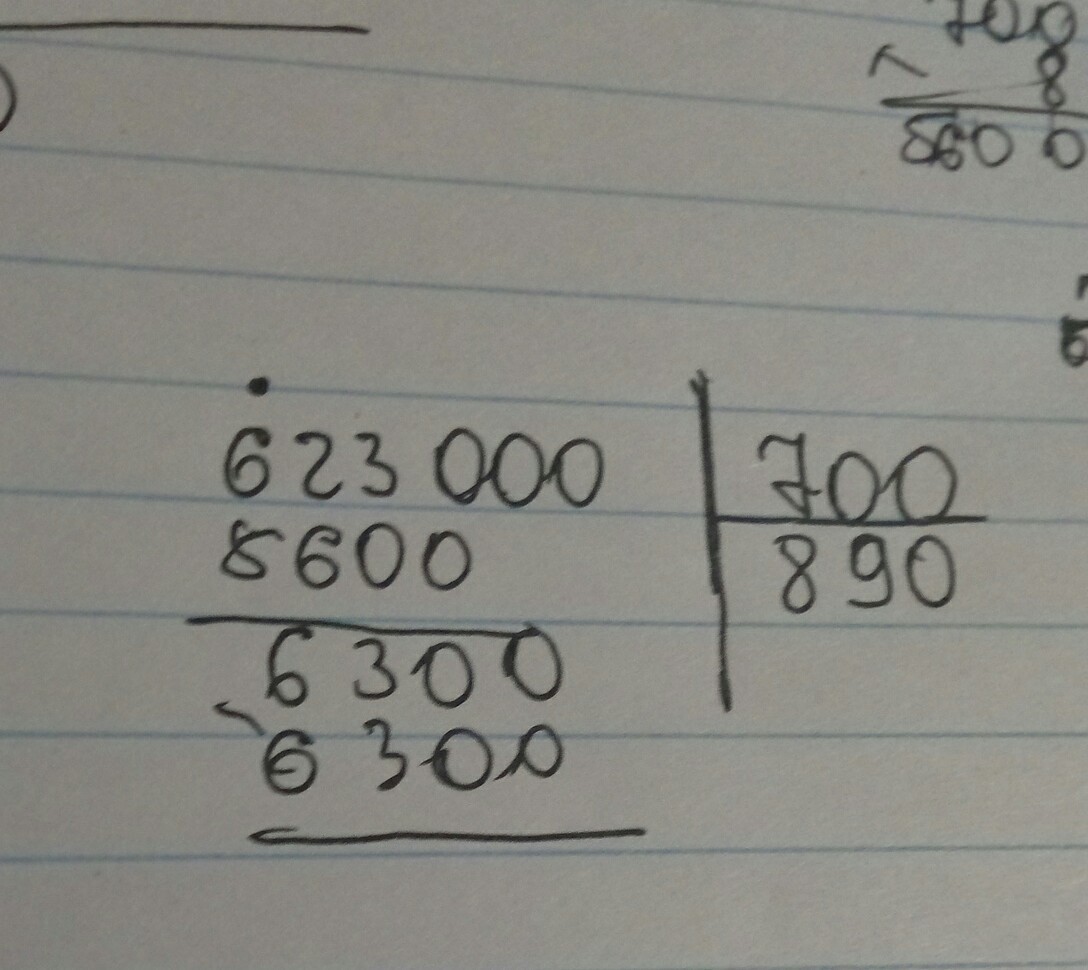 700
× 8
5600
623000 | 700
5600 890
6300
- 6300